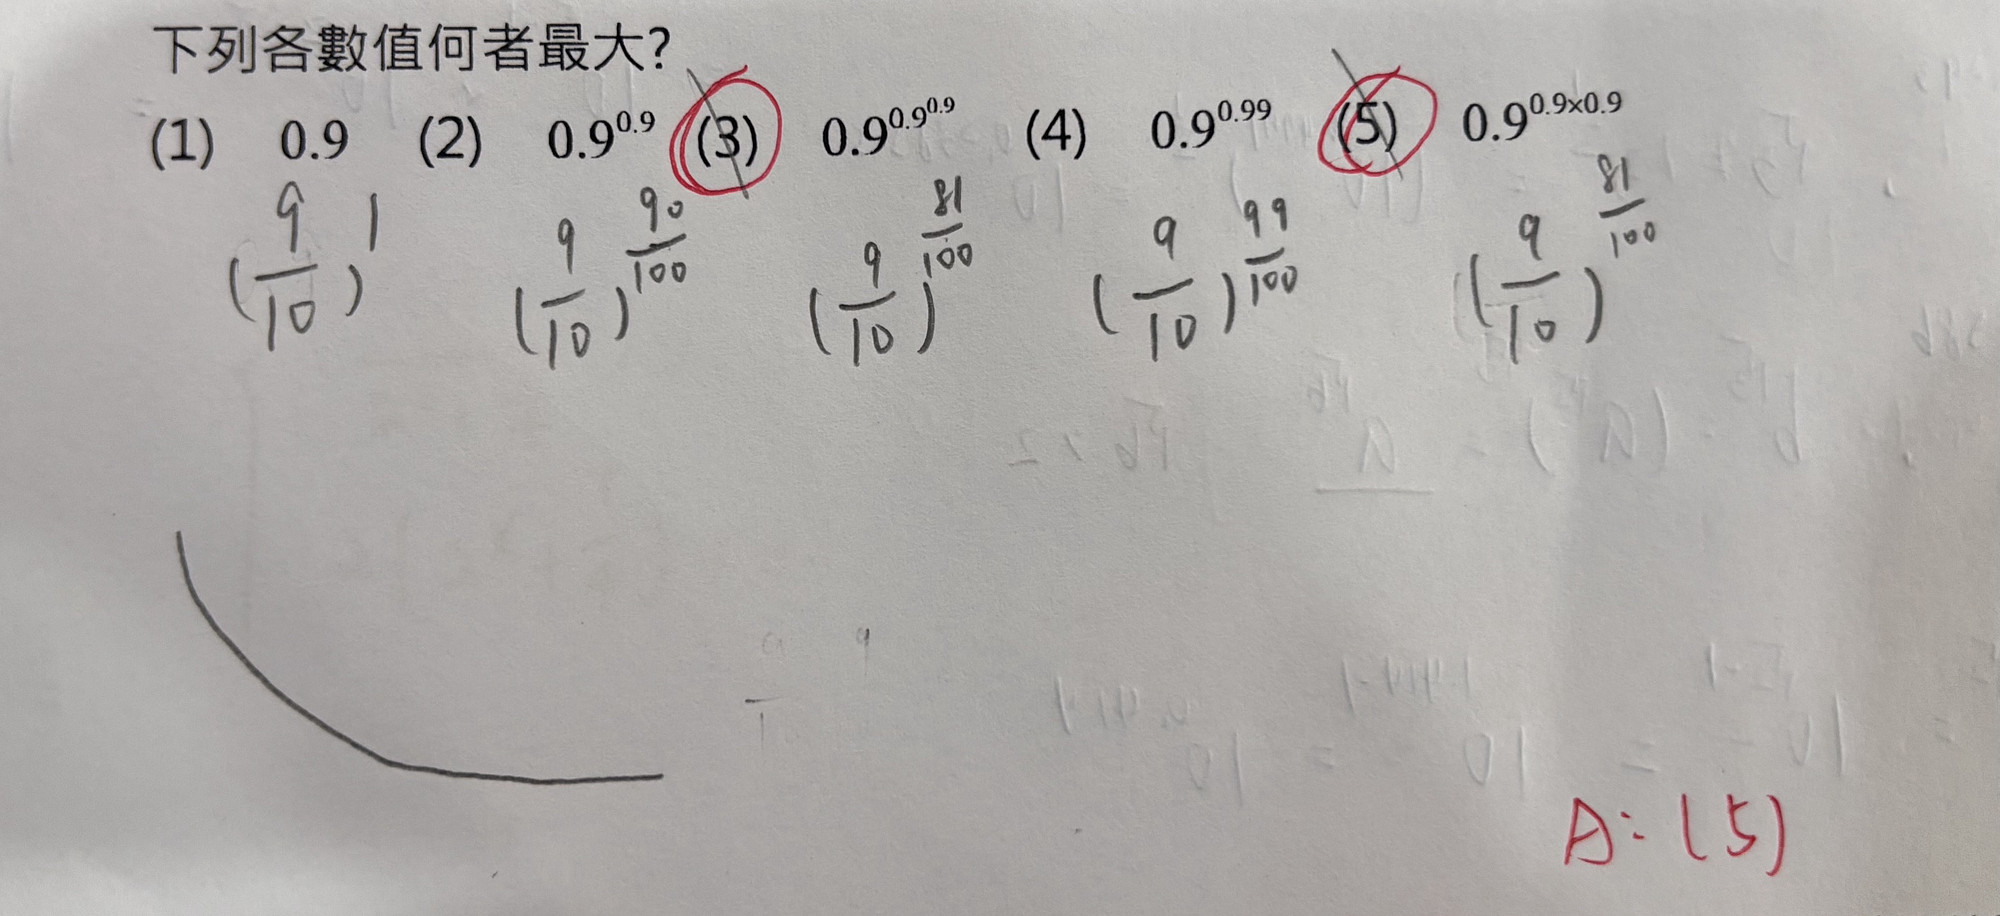 下列各數值何者最大?
(1) 0.9 (2) 0.9^0.9 (3) 0.9^0.9^0.9 (4) 0.9^0.99 (5) 0.9^0.9×0.9
(9/10)^1 (9/10)^90/100 (9/10)^81/100 (9/10)^99/100 (9/10)^81/100
A:(5)